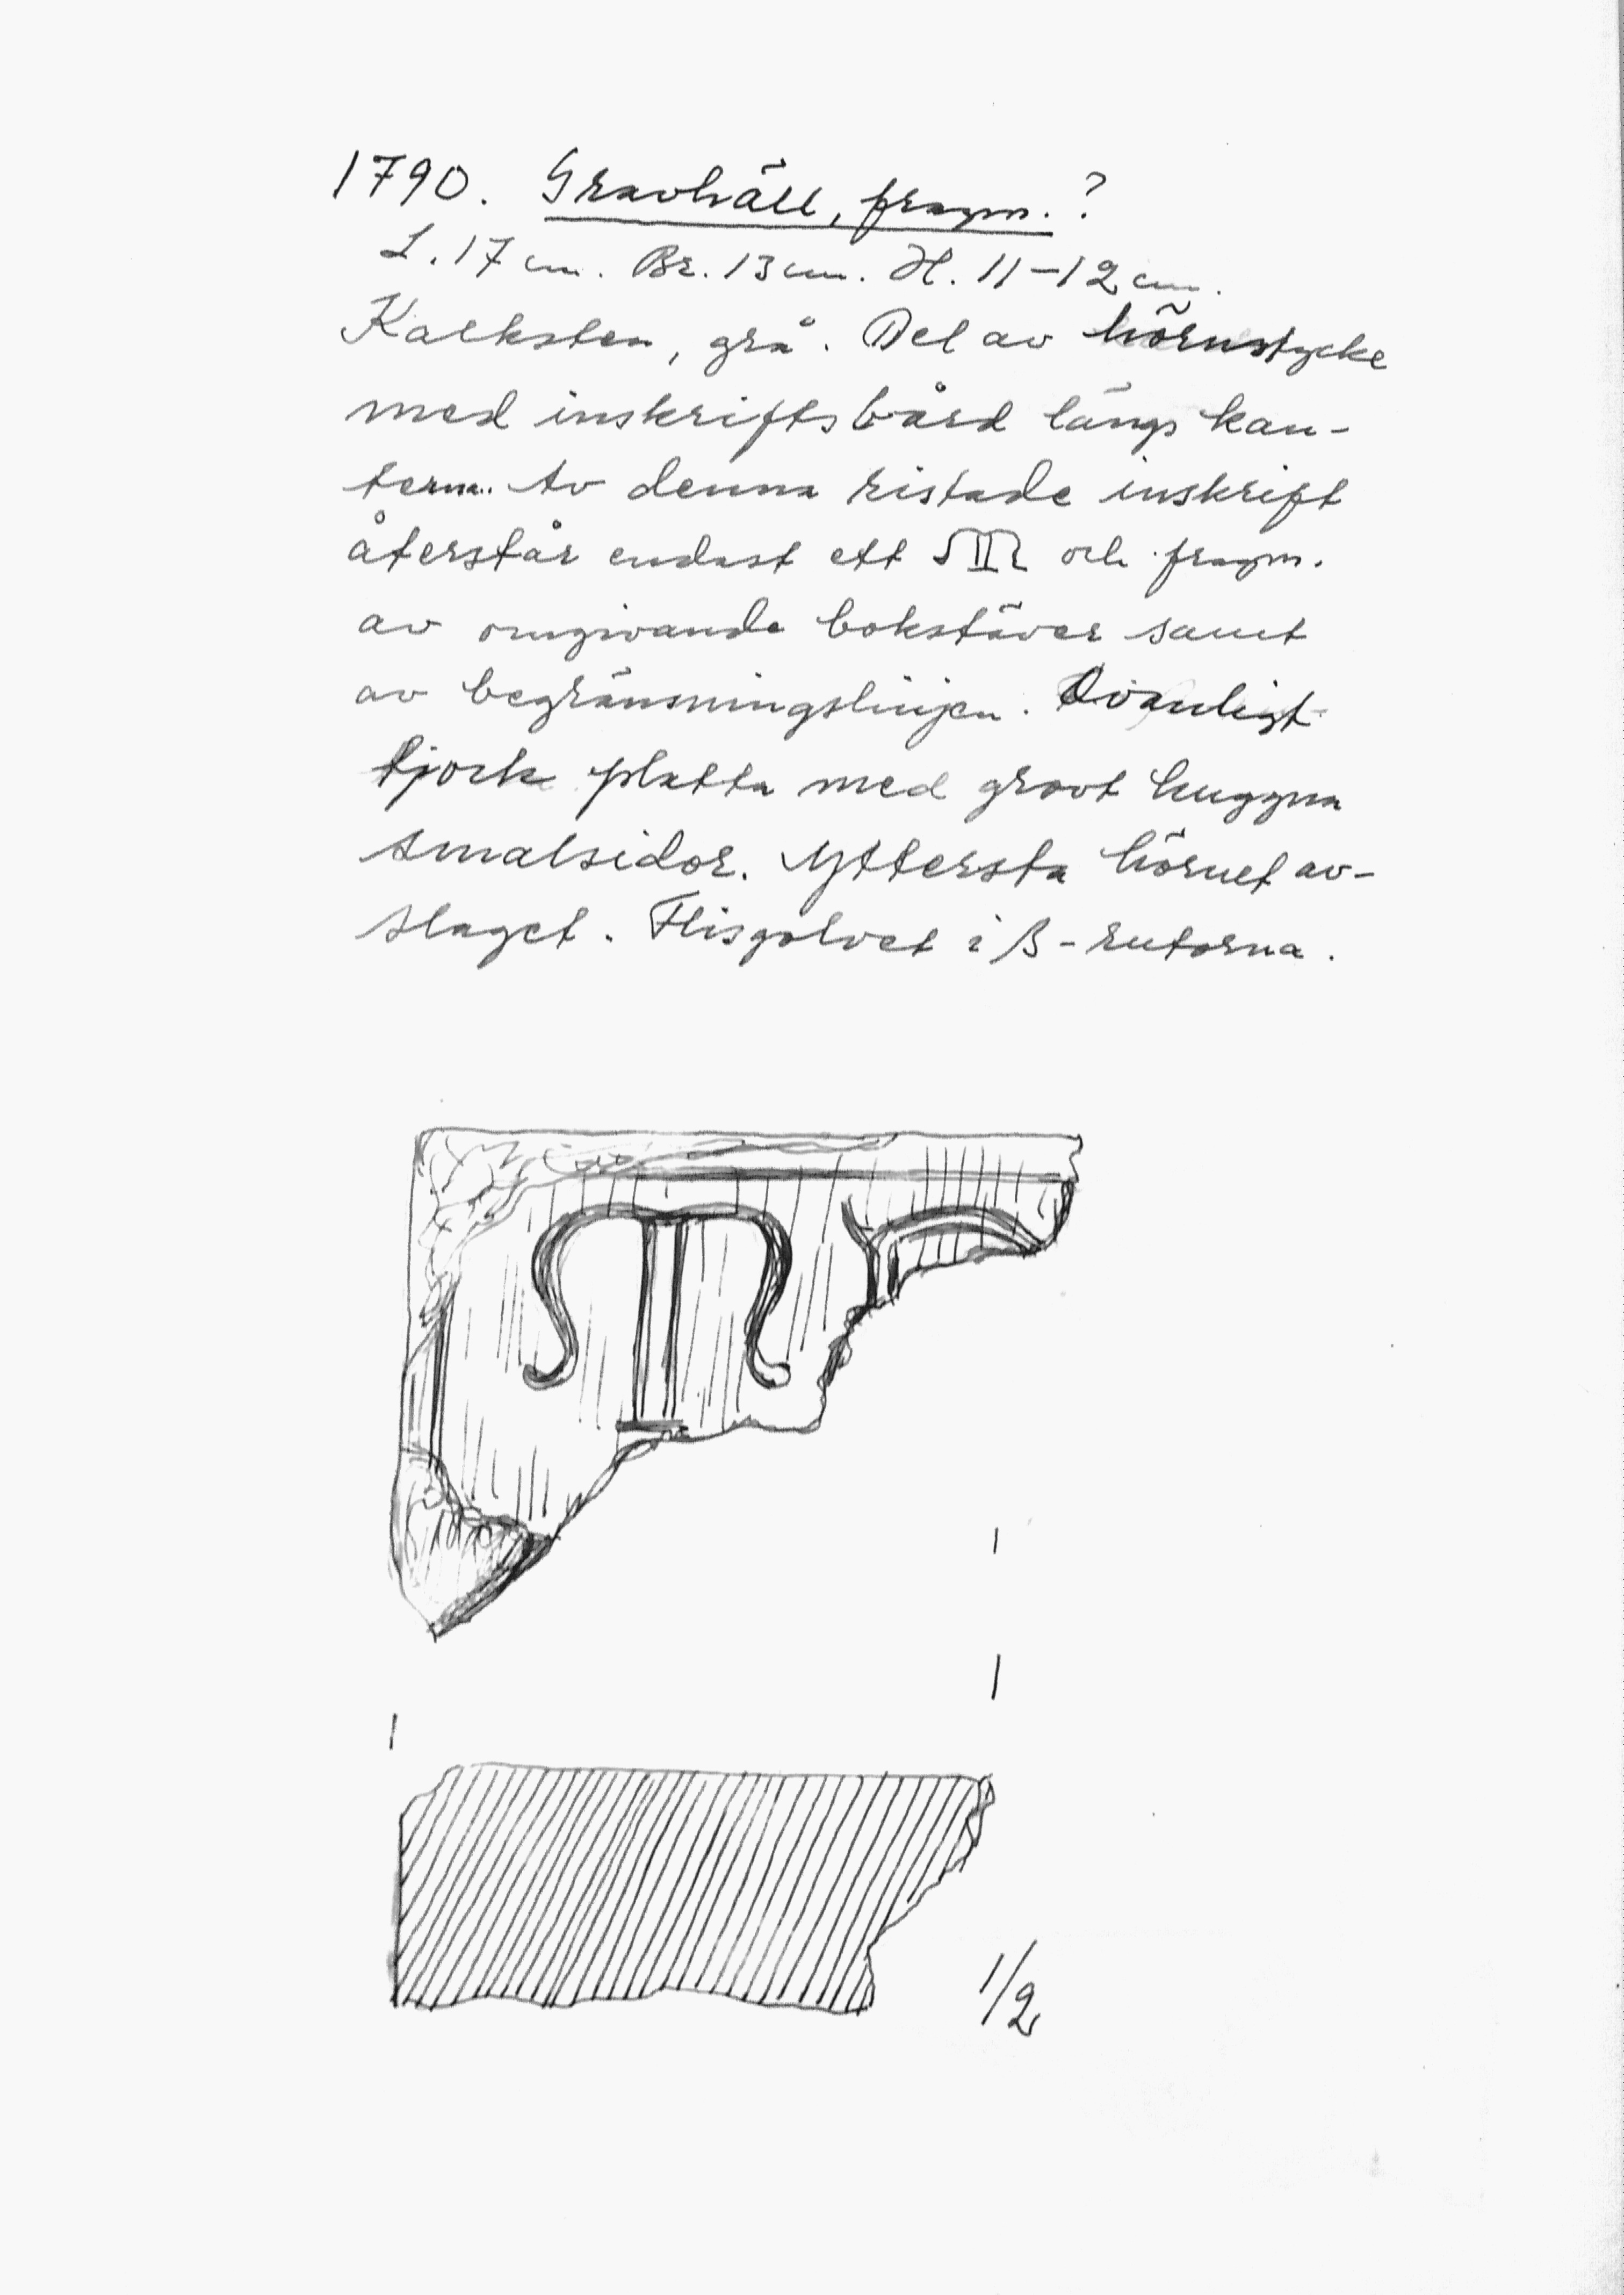 1790. Gravhäll, fragm. ?
L. 17 cm. Br. 13 cm. H. 11–12 cm.
Kalksten, grå. Del av hörnstycke
med inskriftsbård längs kan-
terna. Av denna ristade inskrift
återstår endast ett T och fragm.
av omgivande bokstäver samt
av begränsningslinjen. Ovanligt
tjock platta med grovt huggna
smalsidor. Yttersta hörnet av-
slaget. Flisgolvet i B-rutorna.
T
1/2